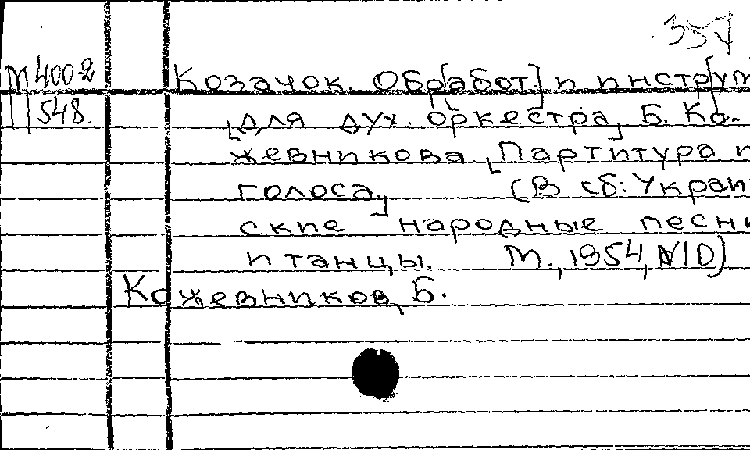 М 4002 Козачок. Обр[абот] и инстр[ум
548. [для дух. оркестра] Б. Ко-
жевникова. [Партитура и
голоса] (В сб: Украин
ские народные песни
и танцы. М., 1954, N10)
Кожевников, Б.